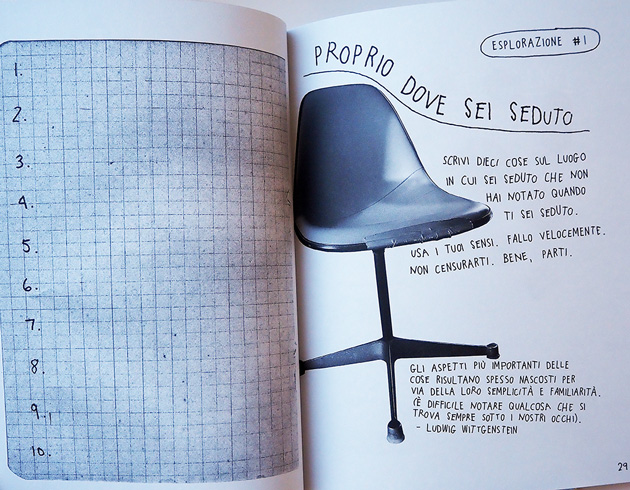 1.
2.
3.
4.
5.
6.
7.
8.
9.
10.
ESPLORAZIONE #1
PROPRIO DOVE SEI SEDUTO
SCRIVI DIECI COSE SUL LUOGO
IN CUI SEI SEDUTO CHE NON
HAI NOTATO QUANDO
TI SEI SEDUTO.
USA I TUOI SENSI. FALLO VELOCEMENTE.
NON CENSURARTI. BENE, PARTI.
GLI ASPETTI PIÙ IMPORTANTI DELLE
COSE RISULTANO SPESSO NASCOSTI PER
VIA DELLA LORO SEMPLICITÀ E FAMILIARITÀ.
(È DIFFICILE NOTARE QUALCOSA CHE SI
TROVA SEMPRE SOTTO I NOSTRI OCCHI).
- LUDWIG WITTGENSTEIN
29